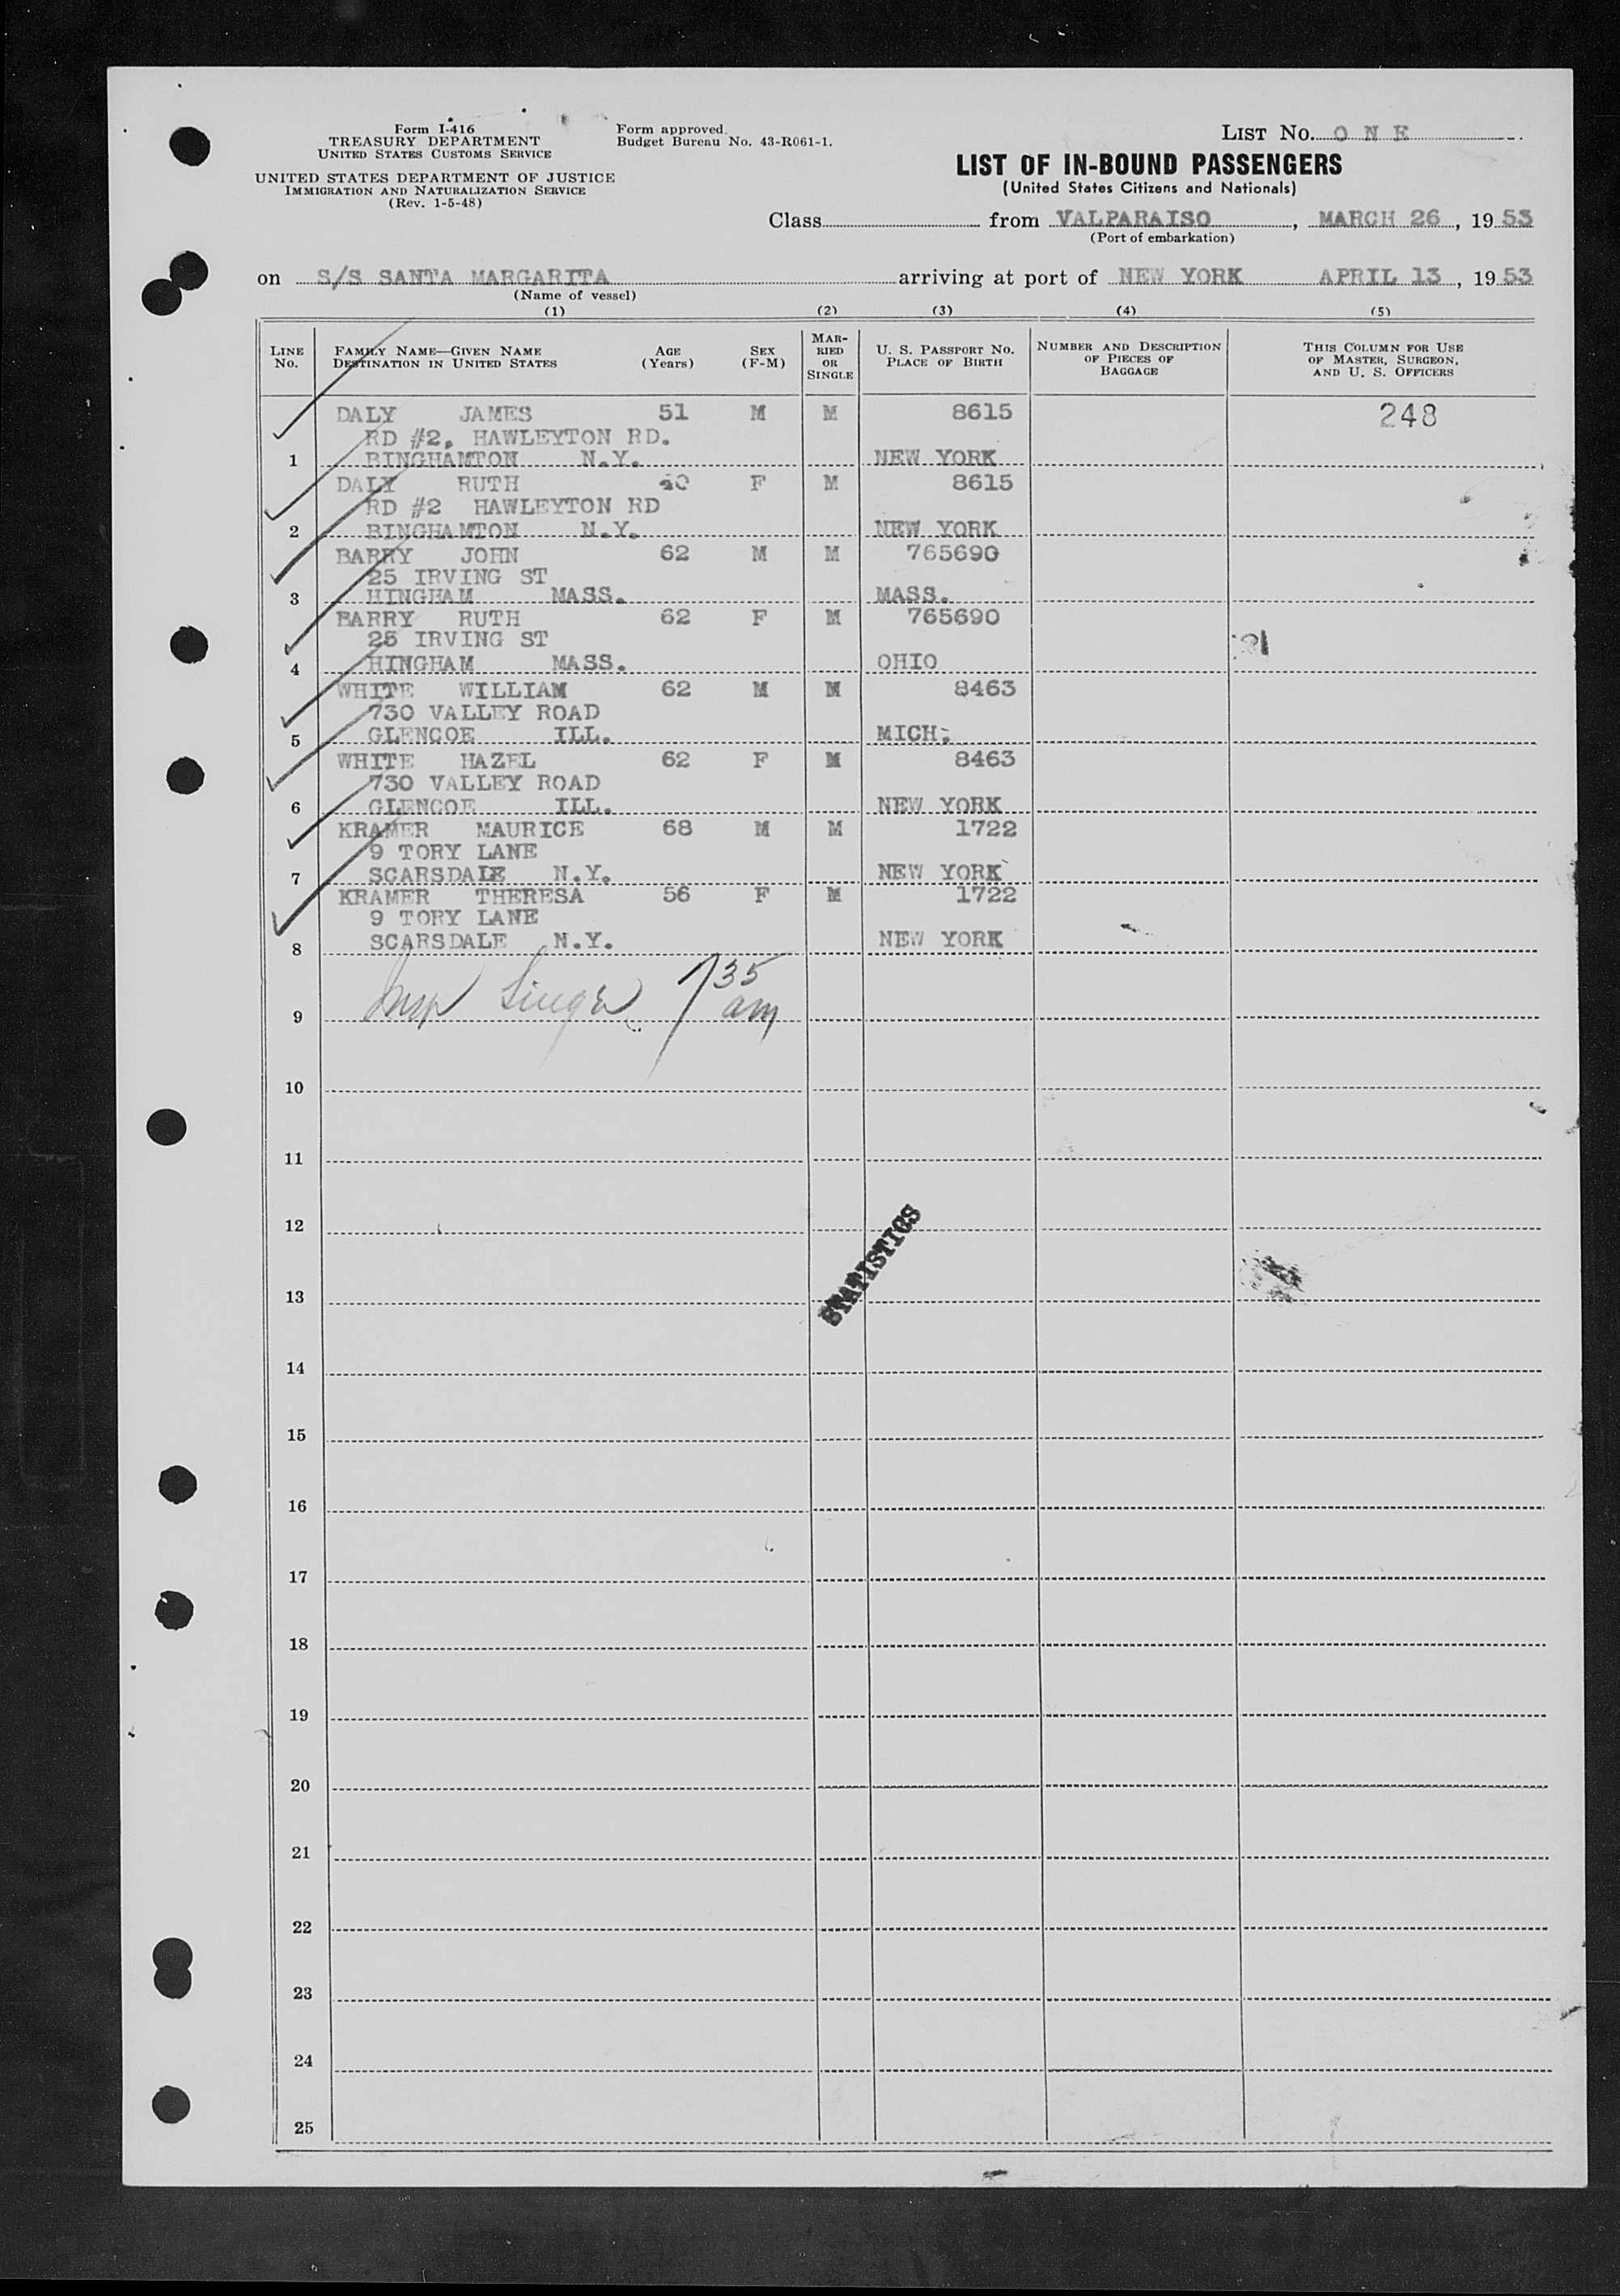 Form I-416
TREASURY DEPARTMENT
UNITED STATES CUSTOMS SERVICE
UNITED STATES DEPARTMENT OF JUSTICE
IMMIGRATION AND NATURALIZATION SERVICE
(Rev. 1-5-48)
Form approved.
Budget Bureau No. 43-R061-1.
LIST NO. O N E
LIST OF IN-BOUND PASSENGERS
(United States Citizens and Nationals)
Class from VALPARAISO, MARCH 26, 19 53
(Port of embarkation)
on S/S SANTA MARGARITA arriving at port of NEW YORK APRIL 13, 19 53
(Name of vessel)
(1) (2) (3) (4) (5)
LINE NO. FAMILY NAME—GIVEN NAME DESTINATION IN UNITED STATES AGE (Years) SEX (F-M) MARRIED OR SINGLE U. S. PASSPORT NO. PLACE OF BIRTH NUMBER AND DESCRIPTION OF PIECES OF BAGGAGE THIS COLUMN FOR USE OF MASTER, SURGEON, AND U. S. OFFICERS
DALY JAMES 51 M M 8615 248
RD #2, HAWLEYTON RD.
1 BINGHAMTON N.Y. NEW YORK
DALY RUTH F M 8615
RD #2 HAWLEYTON RD
2 BINGHAMTON N.Y. NEW YORK
BARRY JOHN 62 M M 765690
25 IRVING ST
3 HINGHAM MASS. MASS.
BARRY RUTH 62 F M 765690
25 IRVING ST
4 HINGHAM MASS. OHIO
WHITE WILLIAM 62 M M 8463
730 VALLEY ROAD
5 GLENCOE ILL. MICH.
WHITE HAZEL 62 F M 8463
730 VALLEY ROAD
6 GLENCOE ILL. NEW YORK
KRAMER MAURICE 68 M M 1722
9 TORY LANE
7 SCARSDALE N.Y. NEW YORK
KRAMER THERESA 56 F M 1722
9 TORY LANE
8 SCARSDALE N.Y. NEW YORK
Insp Singer 7 35 am
9
10
11
12
STATISTICS
13
14
15
16
17
18
19
20
21
22
23
24
25